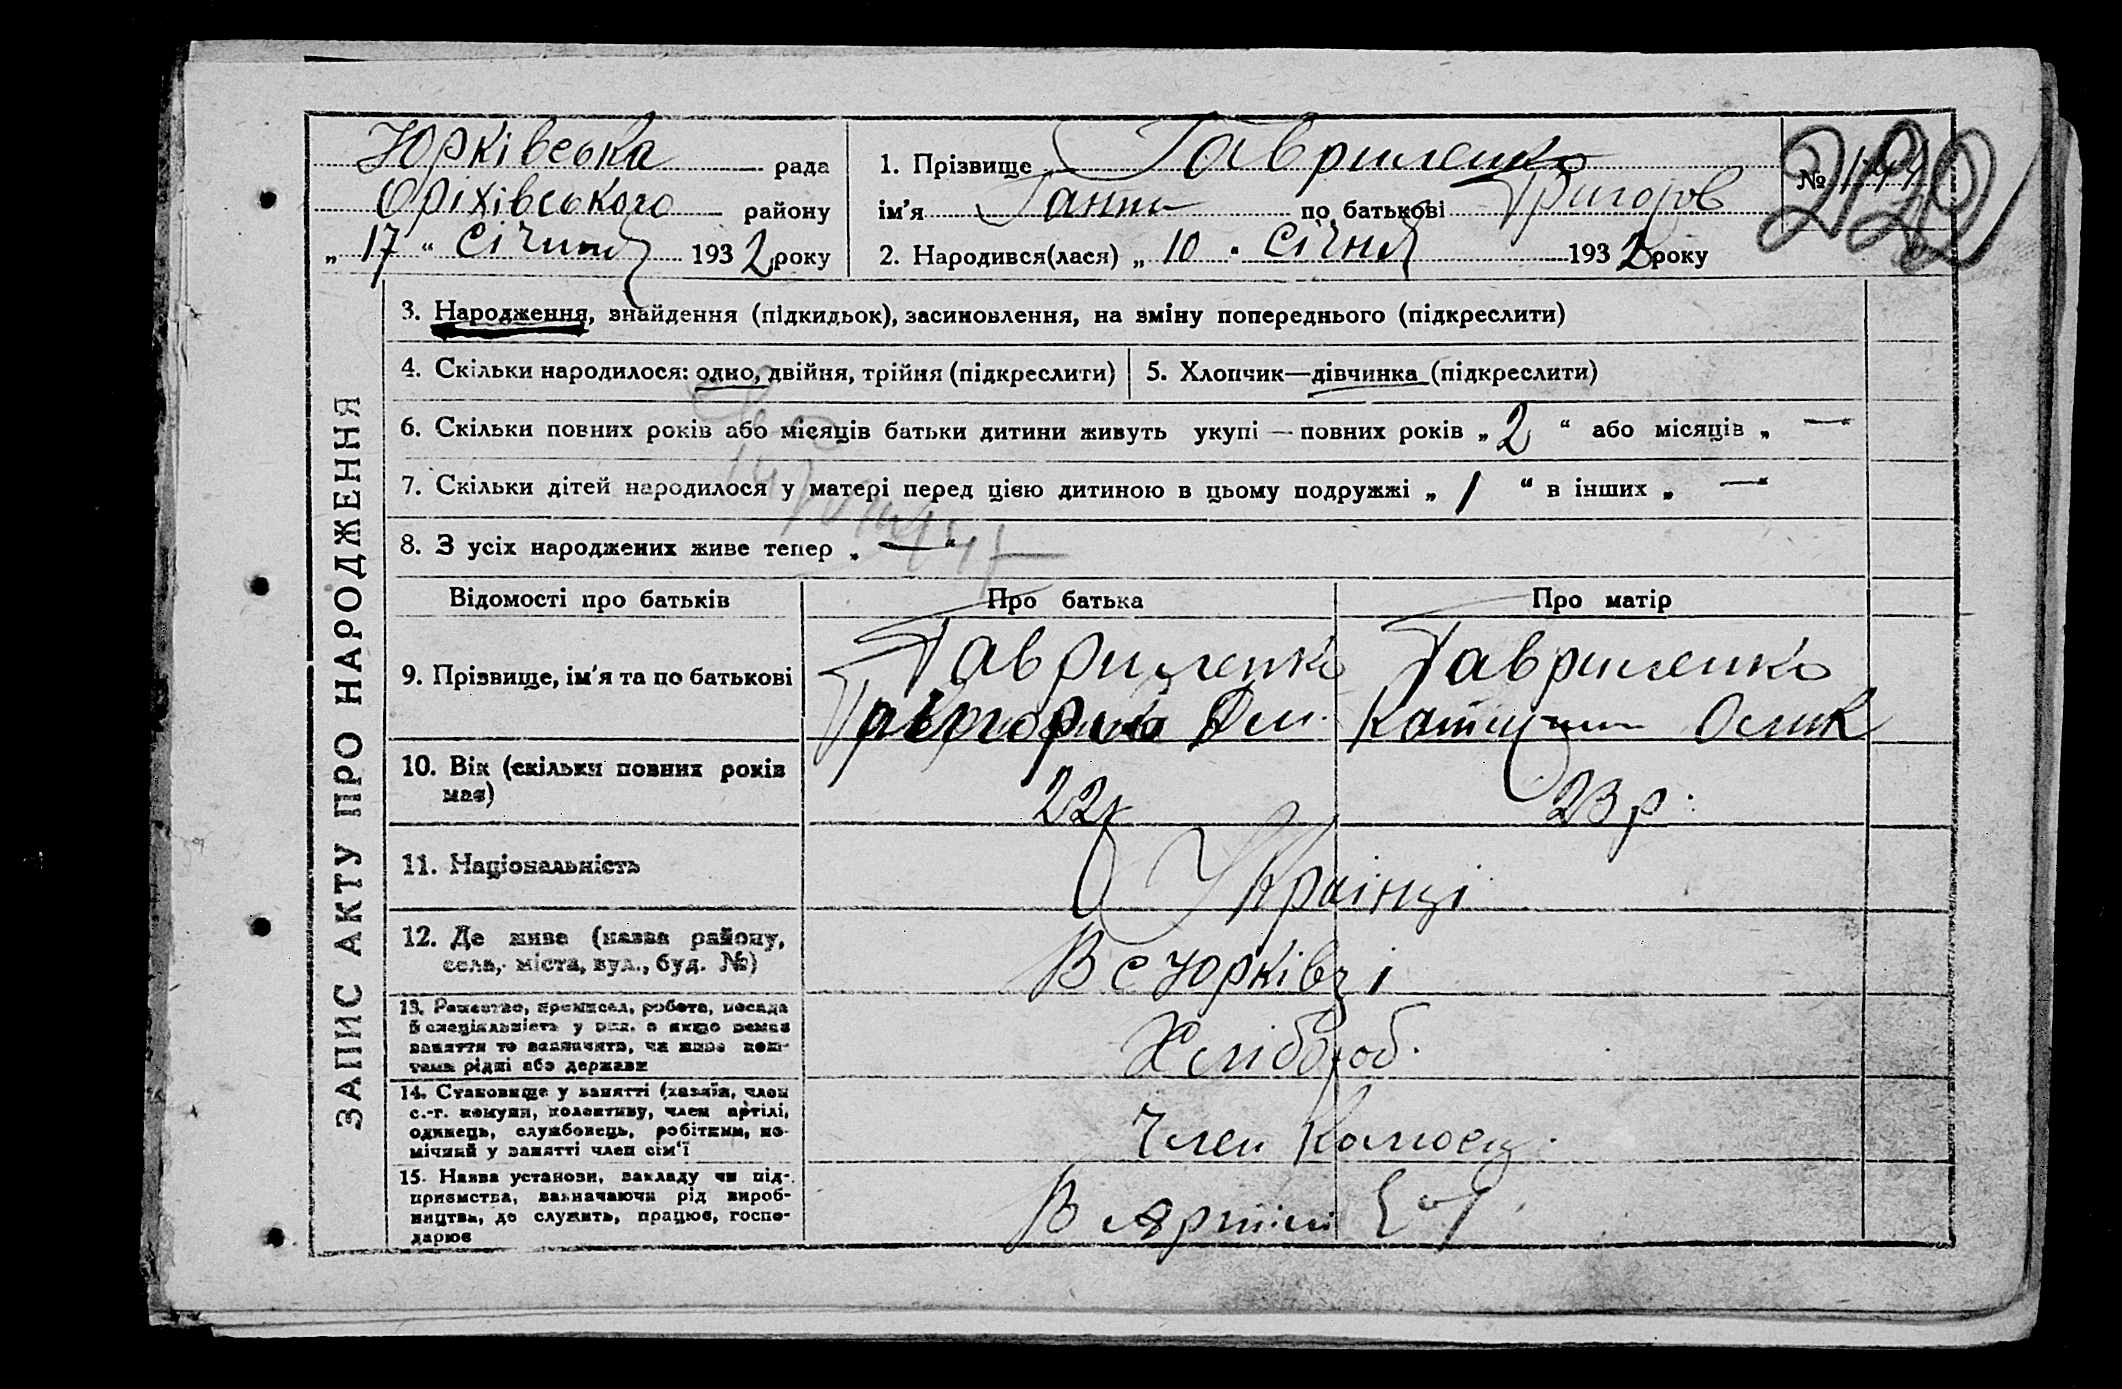 Юрківська рада
Оріхівського району
„ 17 “ січня 1932 року
1. Прізвище Гавриленко
ім’я Ганна по батькові Григоров
2. Народився(лася) „ 10 “ січня 1932 року
№
ЗАПИС АКТУ ПРО НАРОДЖЕННЯ
3. Народження, знайдення (підкидьок), засиновлення, на зміну попереднього (підкреслити)
4. Скільки народилося: одно, двійня, трійня (підкреслити)
5. Хлопчик—дівчинка (підкреслити)
6. Скільки повних років або місяців батьки дитини живуть укупі — повних років „ 2 “ або місяців „ — “
7. Скільки дітей народилося у матері перед цією дитиною в цьому подружжі „ 1 “ в інших „ — “
8. З усіх народжених живе тепер „ — “
Відомості про батьків
Про батька
Про матір
9. Прізвище, ім’я та по батькові
Гавриленко
Григорій Дем.
Гавриленко
10. Вік (скільки повних років
має)
22р
23 р.
11. Національність
Українці
12. Де живе (назва району,
села, міста, вул., буд. №)
В с Юрківці
13. Ремество, промисел, робота, посада
й спеціяльність у них, а якщо немає
заняття то зазначити, чи живе кош-
тами рідні або держави
Хлібороб.
14. Становище у занятті (хазяїн, член
с.-г. комуни, колективу, член артілі,
одинець, службовець, робітник, по-
мічний у занятті член сім’ї
Член
15. Назва установи, закладу чи під-
приємства, зазначаючи рід вироб-
ництва, де служить, працює, госпо-
дарює
В Артілі